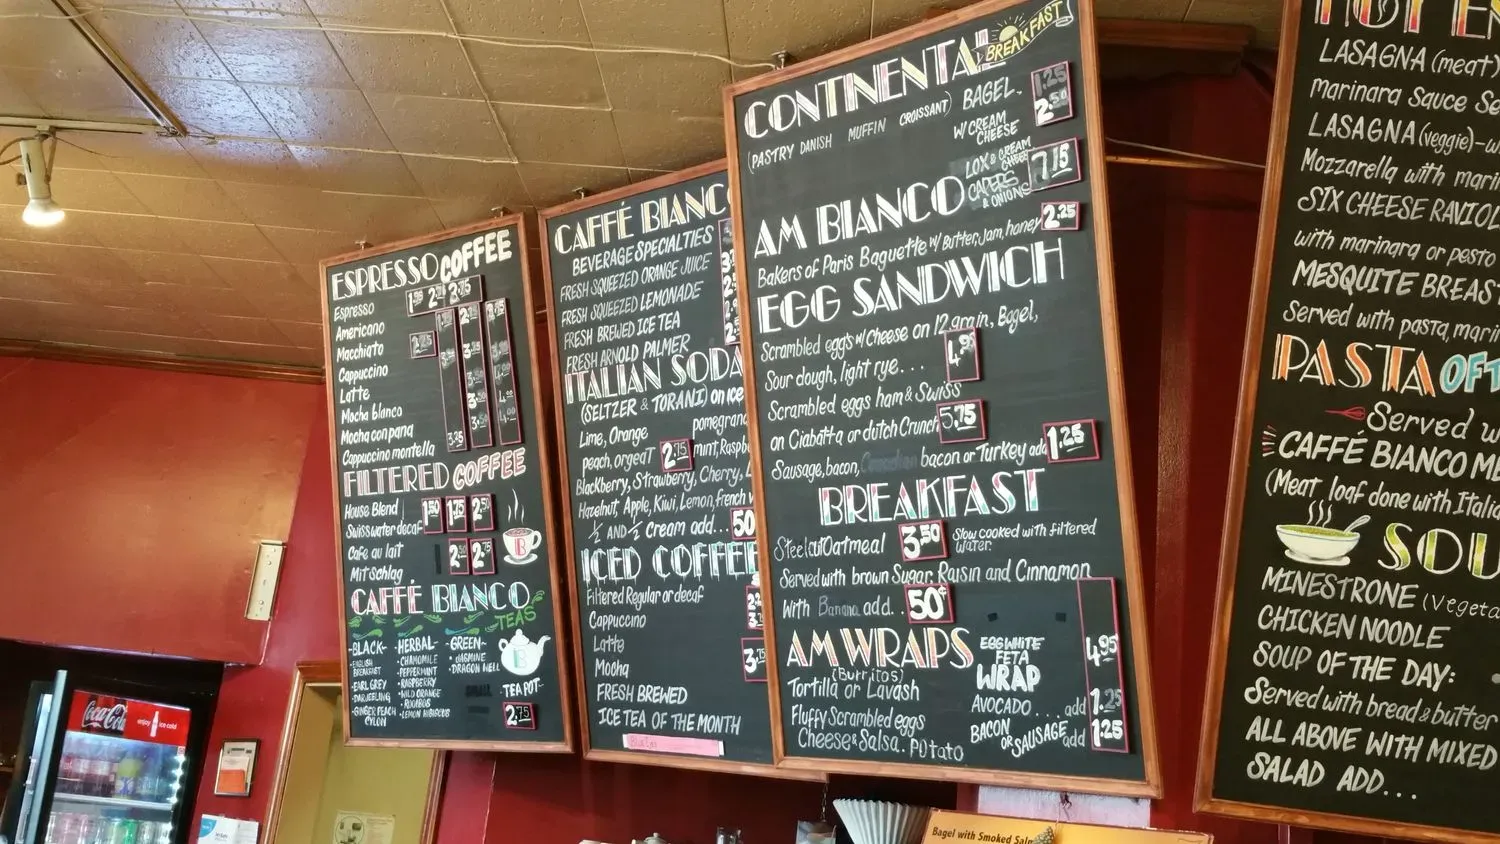 ESPRESSO COFFEE
Espresso
Americano
Macchiato
Cappuccino
Latte
Mocha blanco
Mocha con pana
Cappuccino montella
3.25
FILTERED COFFEE
House Blend 1.50 1.75 2.50
Swisswater decaf
Cafe au lait
Mit Schlag
CAFFÉ BIANCO
TEAS
-BLACK-
-ENGLISH BREAKFAST
-EARL GREY
-DARJEELING
-GINGER PEACH
CYLON
-HERBAL-
-CHAMOMILE
-PEPPERMINT
-RASPBERRY
-WILD ORANGE
-ROOIBOS
-LEMON HIBISCUS
-GREEN-
-JASMINE
-DRAGON WELL
TEA POT-
2.75
CAFFÉ BIANC
BEVERAGE SPECIALTIES
FRESH SQUEEZED ORANGE JUICE
FRESH SQUEEZED LEMONADE
FRESH BREWED ICE TEA
FRESH ARNOLD PALMER
ITALIAN SODA
(SELTZER & TORANI) on ice
Lime, Orange
peach, orgeaT 2.75 mint, Raspb
Blackberry, Strawberry, Cherry,
Hazelnut, Apple, Kiwi, Lemon, french v
½ AND ½ Cream add... 50
ICED COFFEE
Filtered Regular or decaf
Cappuccino
Latte
Mocha
FRESH BREWED
ICE TEA OF THE MONTH
CONTINENTAL BREAKFAST
(PASTRY DANISH MUFFIN CROISSANT) BAGEL. 1.25
W/ CREAM CHEESE 2.50
LOX & CREAM CHEESE
CAPERS & ONIONS 7.15
AM BIANCO
Bakers of Paris Baguette w/ Butter, Jam, honey 2.25
EGG SANDWICH
Scrambled eggs w/ Cheese on 12 grain, Bagel,
Sour dough, light rye... 4.95
Scrambled eggs ham & Swiss
on Ciabatta or dutch Crunch 5.75
Sausage, bacon, Canadian bacon or Turkey add 1.25
BREAKFAST
Steel cut Oatmeal 3.50 Slow cooked with filtered water.
Served with brown Sugar, Raisin and Cinnamon
With Banana add.. 50¢
AM WRAPS
(Burritos)
Tortilla or Lavash
Fluffy Scrambled eggs
Cheese & Salsa. POtato
EGG WHITE
FETA
WRAP 4.95
AVOCADO... add 1.25
BACON OR SAUSAGE add 1.25
HOT EN
LASAGNA (meat)
Marinara Sauce Se
LASAGNA (veggie)-w
Mozzarella with mari
SIX CHEESE RAVIOL
with marinara or pesto
MESQUITE BREAS
Served with pasta, marin
PASTA OF T
Served w
CAFFÉ BIANCO ME
(Meat loaf done with Italia
SOU
MINESTRONE (Vegeta
CHICKEN NOODLE
SOUP OF THE DAY:
Served with bread & butter
ALL ABOVE WITH MIXED
SALAD ADD...
Coca-Cola
enjoy ice cold
Bagel with Smoked Salm